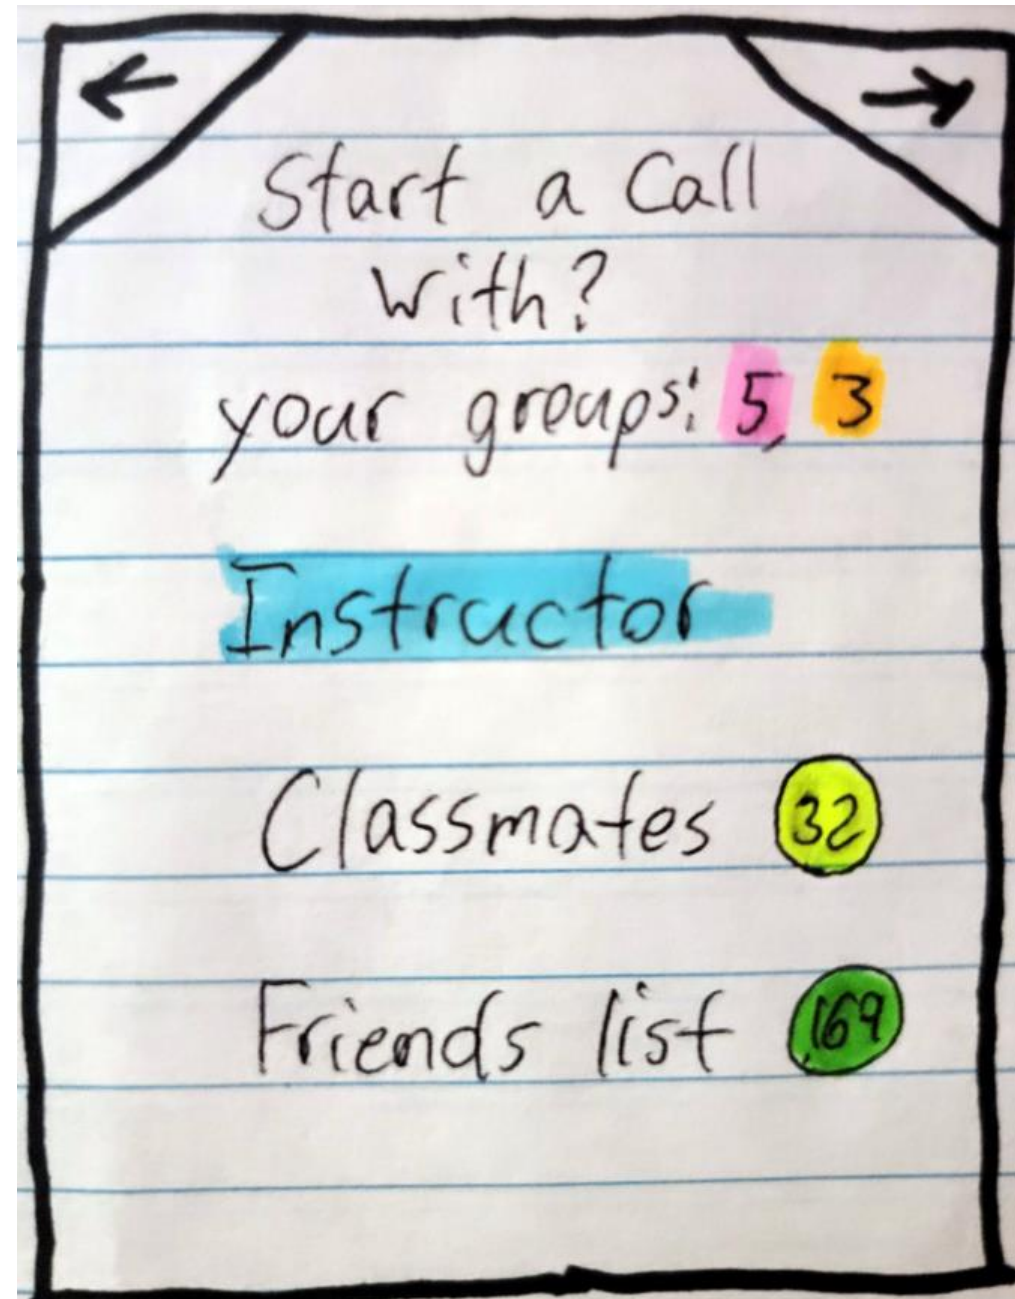 Start a Call
With?
your groups: 5, 3
Instructor
Classmates 32
Friends list 169